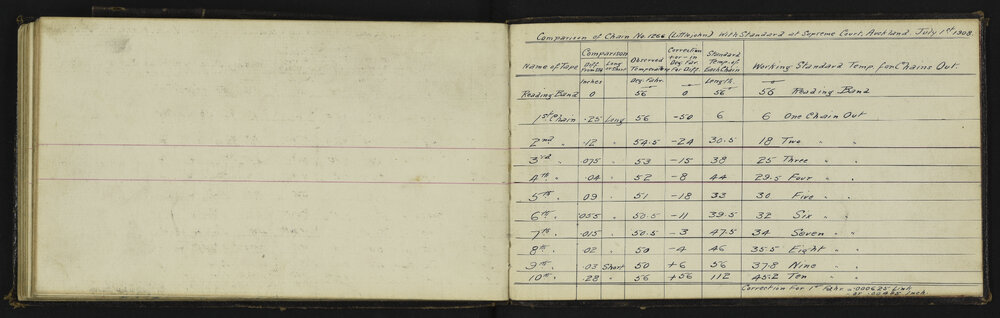 Comparison of Chain No. 1266 (Littlejohn) With Standard at Supreme Court, Auckland July 1st 1908.
Name of Tape Comparison Diff. from Std Long or Short Observed Temperature Correction + or - in Deg. Far. For Diff. Standard Temp. of Each Chain Working Standard Temp. for Chains Out.
Inches Deg. Fahr. Length
Reading Band 0 56 0 56 56 Reading Band
1st Chain .25 Long 56 -50 6 6 One Chain Out
2nd " .12 " 54.5 -24 30.5 18 Two " "
3rd " .075 " 53 -15 38 25 Three " "
4th " .04 " 52 -8 44 29.5 Four " "
5th " .09 " 51 -18 33 30 Five " "
6th " .055 " 50.5 -11 39.5 32 Six " "
7th " .015 " 50.5 -3 47.5 34 Seven " "
8th " .02 " 50 -4 46 35.5 Eight " "
9th " .03 Short 50 +6 56 37.8 Nine " "
10th " .28 " 56 +56 112 45.2 Ten " "
Correction For 1° Fahr. = .000625 Link
" or .00495 Inch.